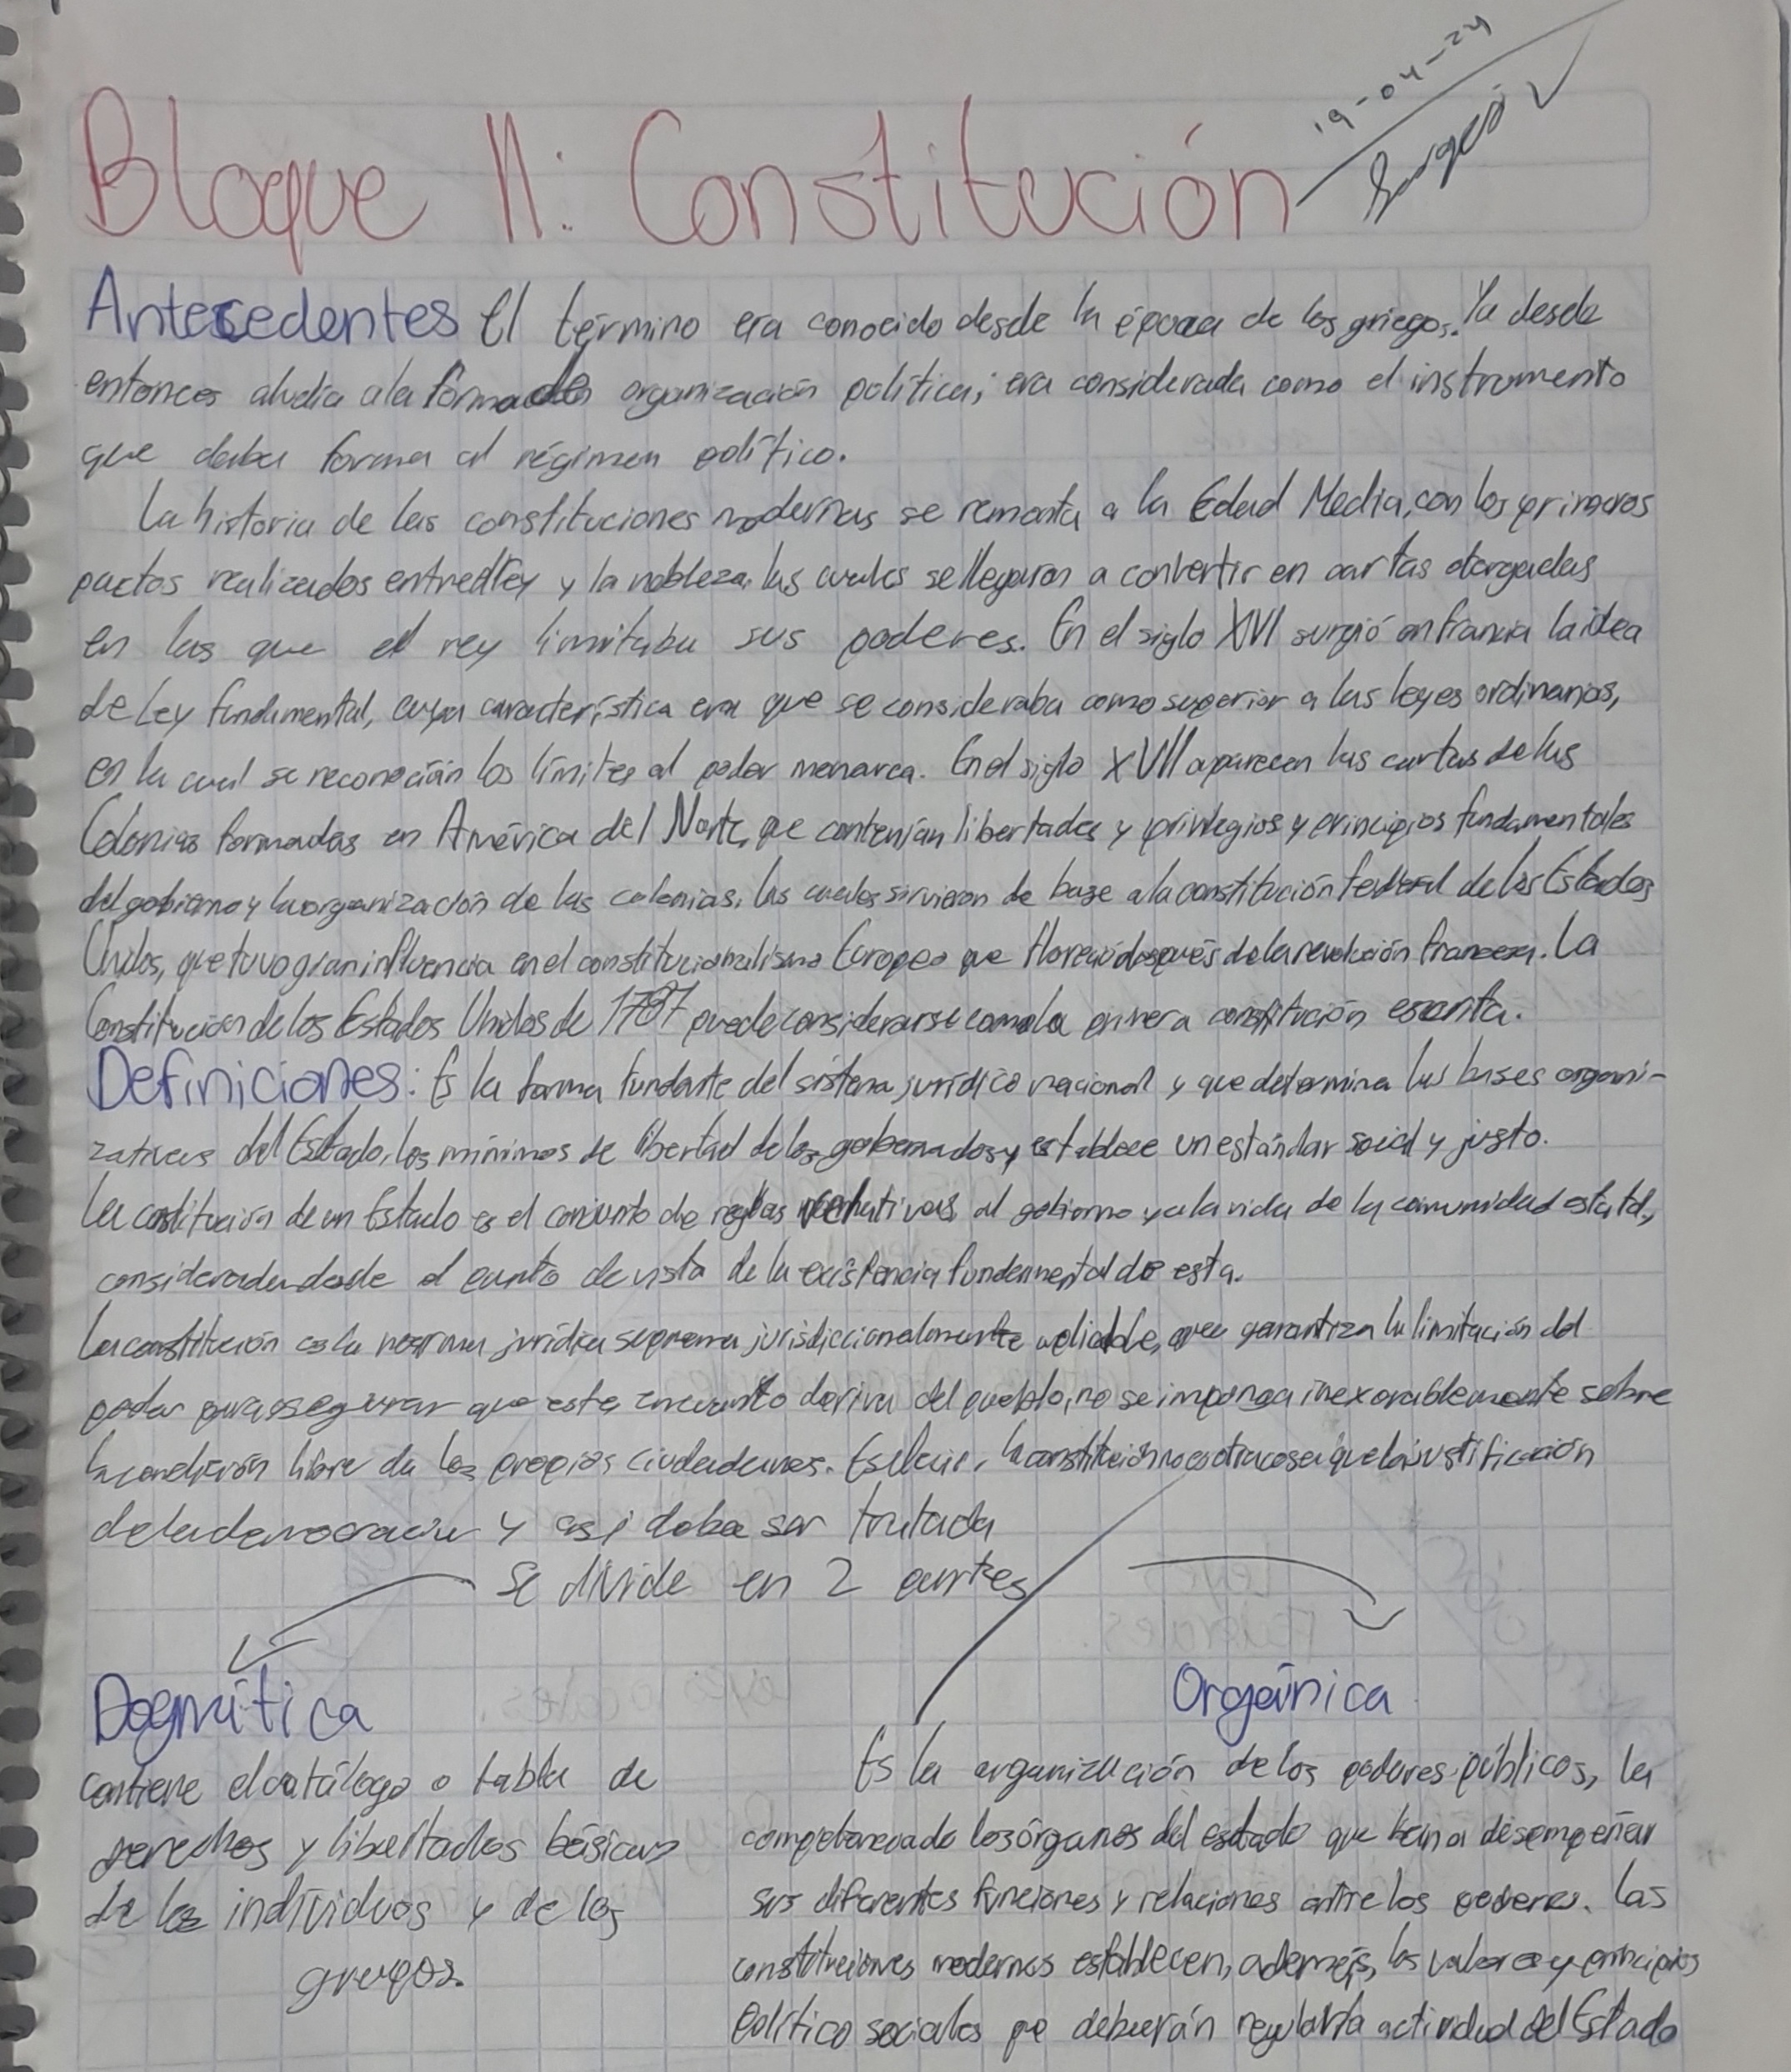 19-04-24
Bloque II: Constitución
Antecedentes El término era conocido desde la época de los griegos. Ya desde
entonces aludía a la forma de organización política; era considerada como el instrumento
que daba forma al régimen político.
La historia de las constituciones modernas se remonta a la Edad Media, con los primeros
pactos realizados entre el rey y la nobleza, las cuales se llegaron a convertir en cartas otorgadas
en las que el rey limitaba sus poderes. En el siglo XVI surgió en Francia la idea
de Ley fundamental, cuya característica era que se consideraba como superior a las leyes ordinarias,
en la cual se reconocían los límites al poder monarca. En el siglo XVII aparecen las cartas de las
Colonias formadas en América del Norte, que contenían libertades y privilegios y principios fundamentales
del gobierno y la organización de las colonias, las cuales sirvieron de base a la constitución federal de los Estados
Unidos, que tuvo gran influencia en el constitucionalismo Europeo que floreció después de la revolución francesa. La
Constitución de los Estados Unidos de 1787 puede considerarse como la primera constitución escrita.
Definiciones: Es la forma fundante del sistema jurídico nacional y que determina las bases organi-
zativas del Estado, los mínimos de libertad de los gobernados y establece un estándar social y justo.
La costitución de un Estado es el conjunto de reglas relativas al gobierno y a la vida de la comunidad estatal,
considerada desde el punto de vista de la existencia fundamental de esta.
La constitución es la norma jurídica suprema jurisdiccionalmente aplicable, que garantiza la limitación del
poder para asegurar que este, en cuanto deriva del pueblo, no se imponga inexorablemente sobre
la condición libre de los propios ciudadanos. Es decir, la constitución no es otra cosa que la justificación
de la democracia y así debe ser tratada
Se divide en 2 partes
Dogmática
contiene el catálogo o tabla de
derechos y libertades básicas
de los individuos y de los
grupos.
Orgánica
Es la organización de los poderes públicos, la
competencia de los órganos del estado que han a desempeñar
sus diferentes funciones y relaciones entre los poderes. Las
constituciones modernas establecen, además, los valores y principios
político sociales que deberán regular la actividad del Estado